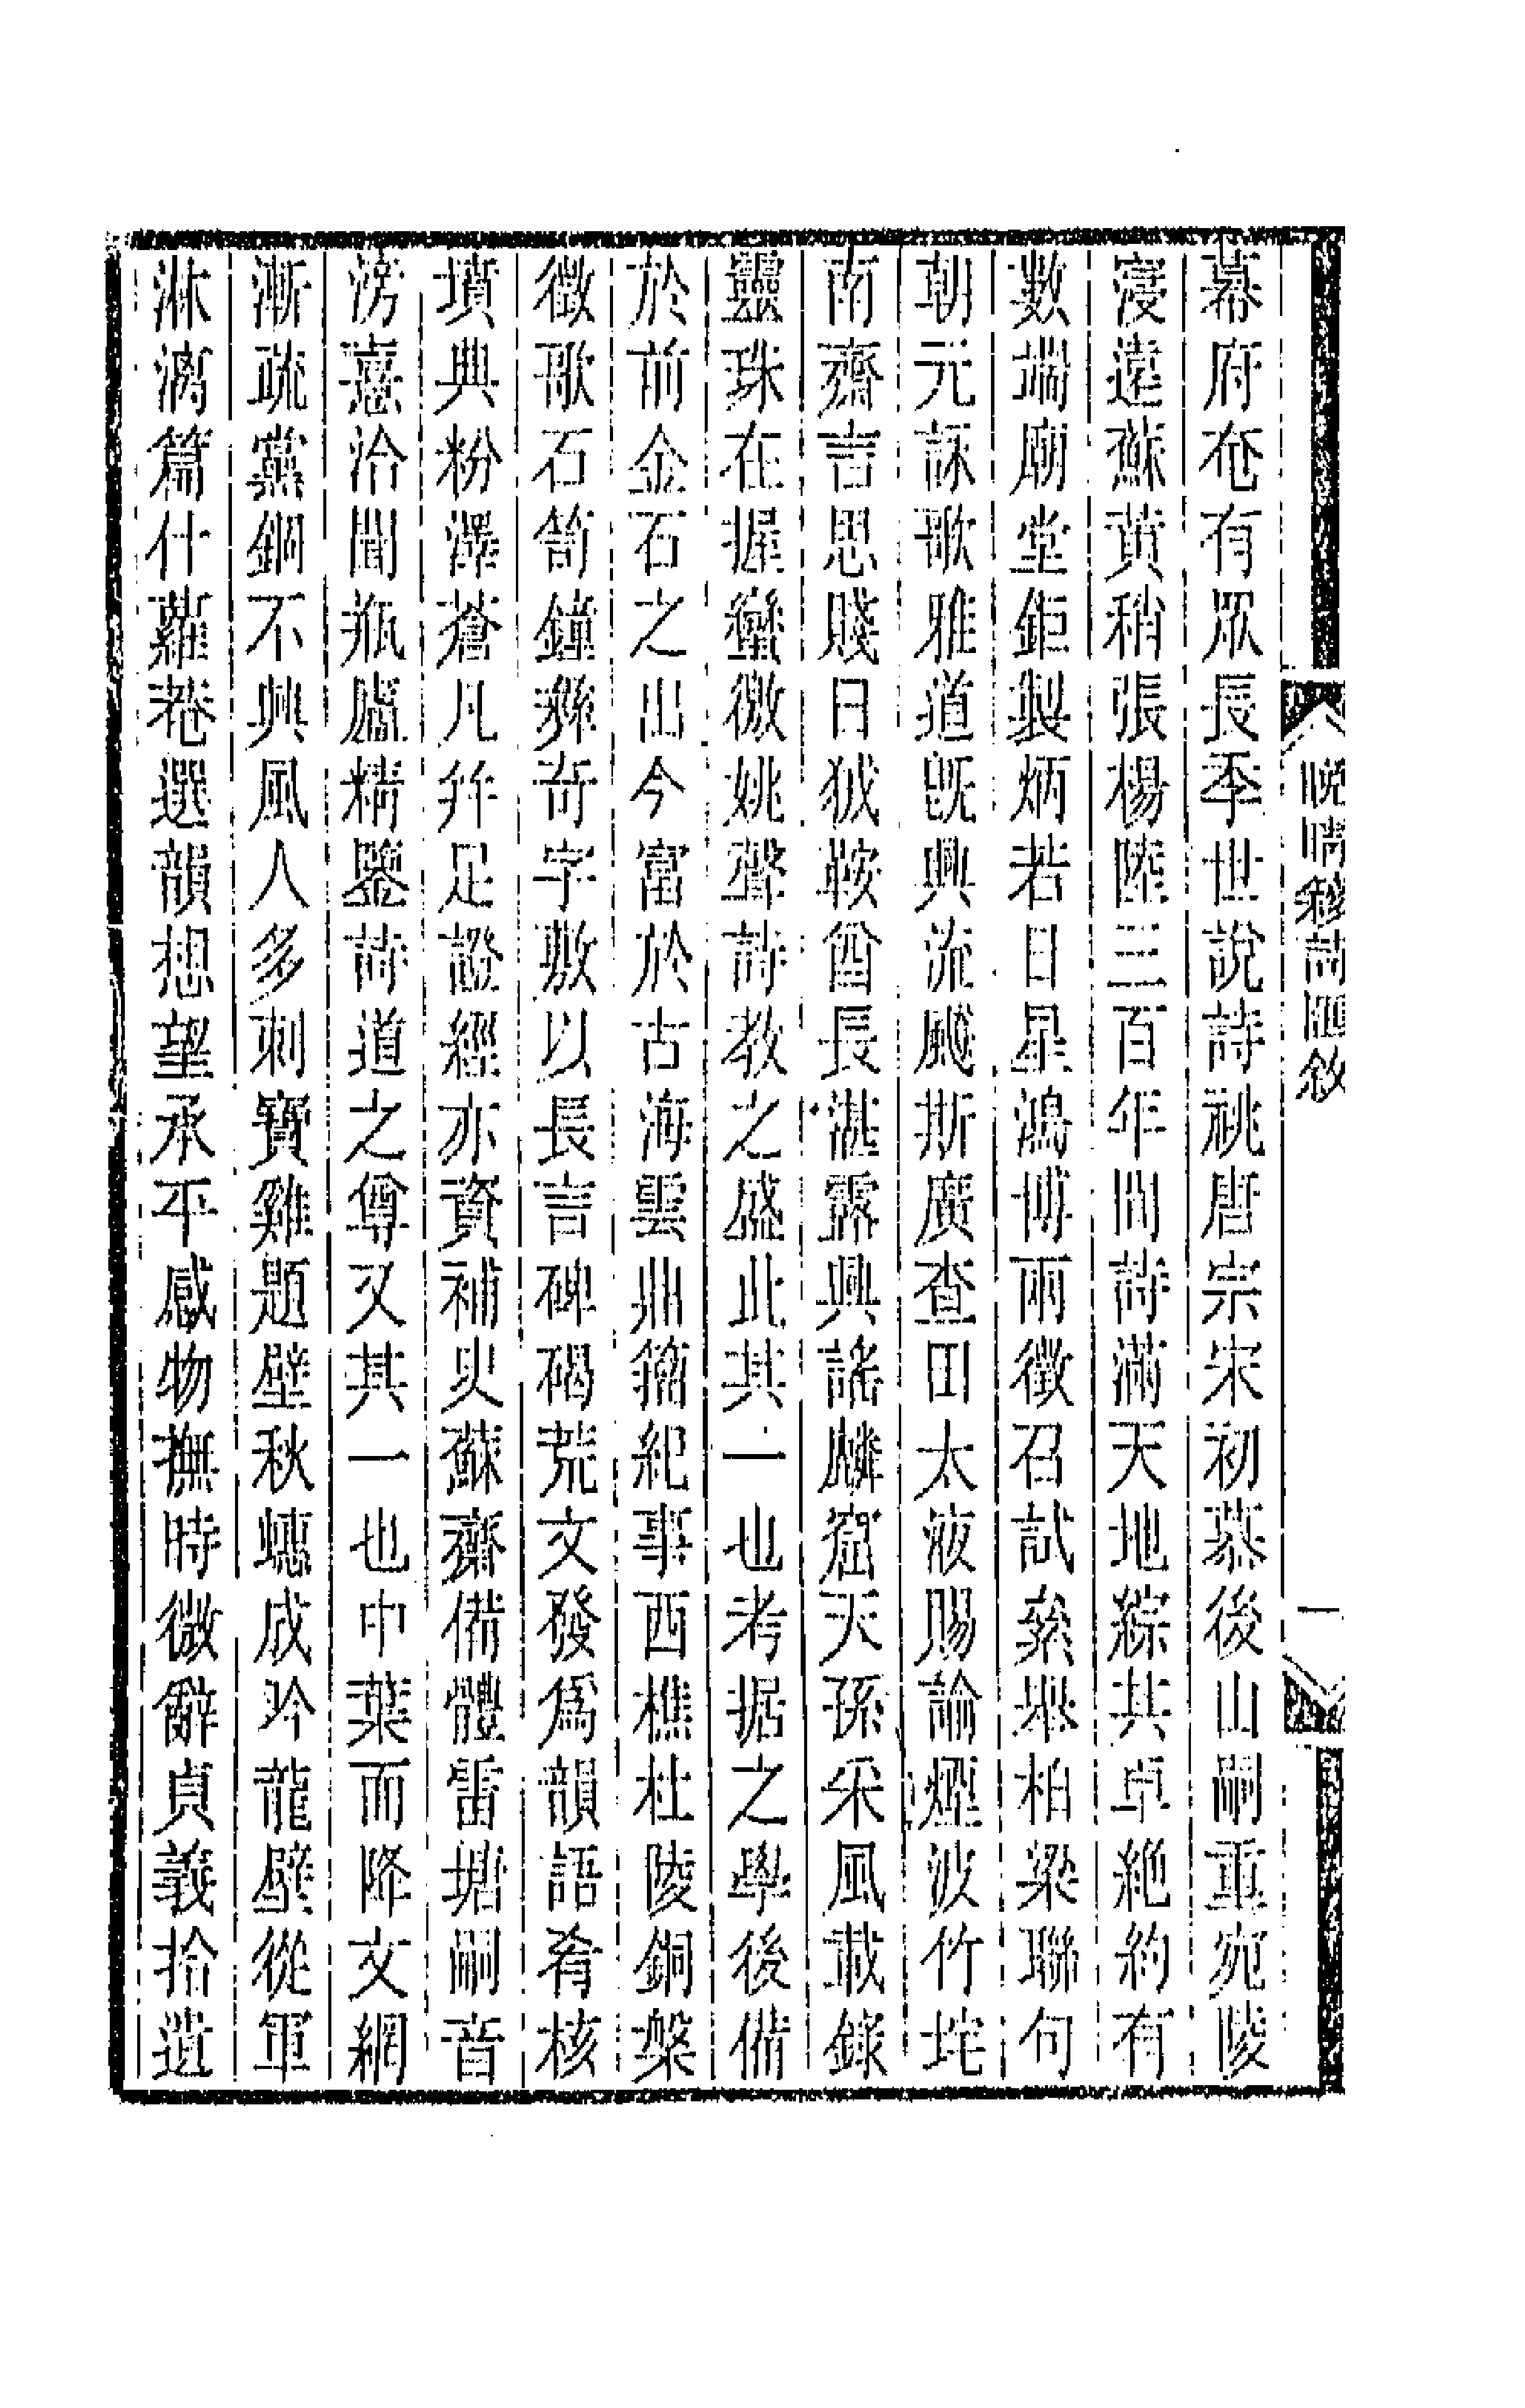 晚晴簃詩匯敘
一
幕府奄有眾長季世說詩祧唐宗宋初慕後山嗣重宛陵
寖遠蘇黃稍張楊陸三百年間詩滿天地綜其卓絕約有
數端廟堂鉅製炳若日星鴻博兩徵召試絫舉柏梁聯句
朝元詠歌雅道旣興流颷斯廣查田太液賜論煙波竹垞
南齋吉思賤日狨鞍酋長湛露興謠麟窟天孫采風載錄
靈珠在握蠻徼姚聲詩教之盛此其一也考据之學後備
於前金石之出今富於古海雲鼎籀紀事西樵杜陵銅槃
徵歌石笥鐘彝奇字敷以長言碑碣荒文發爲韻語肴核
墳典粉澤蒼凡幷足證經亦資補史蘇齋備體雷塘嗣音
滂憙洽聞瓶廬精鑒詩道之尊又其一也中葉而降文網
漸疏黨錮不興風人多刺寶雞題壁秋蟪成吟龍壁從軍
淋漓篇什蘿菴選韻想望承平感物撫時微辭貞義拾遺